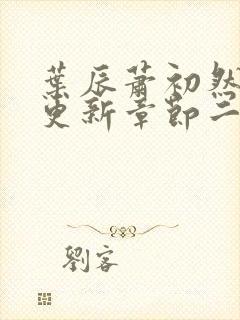 葉辰蕭初然
更新章節二
劉客